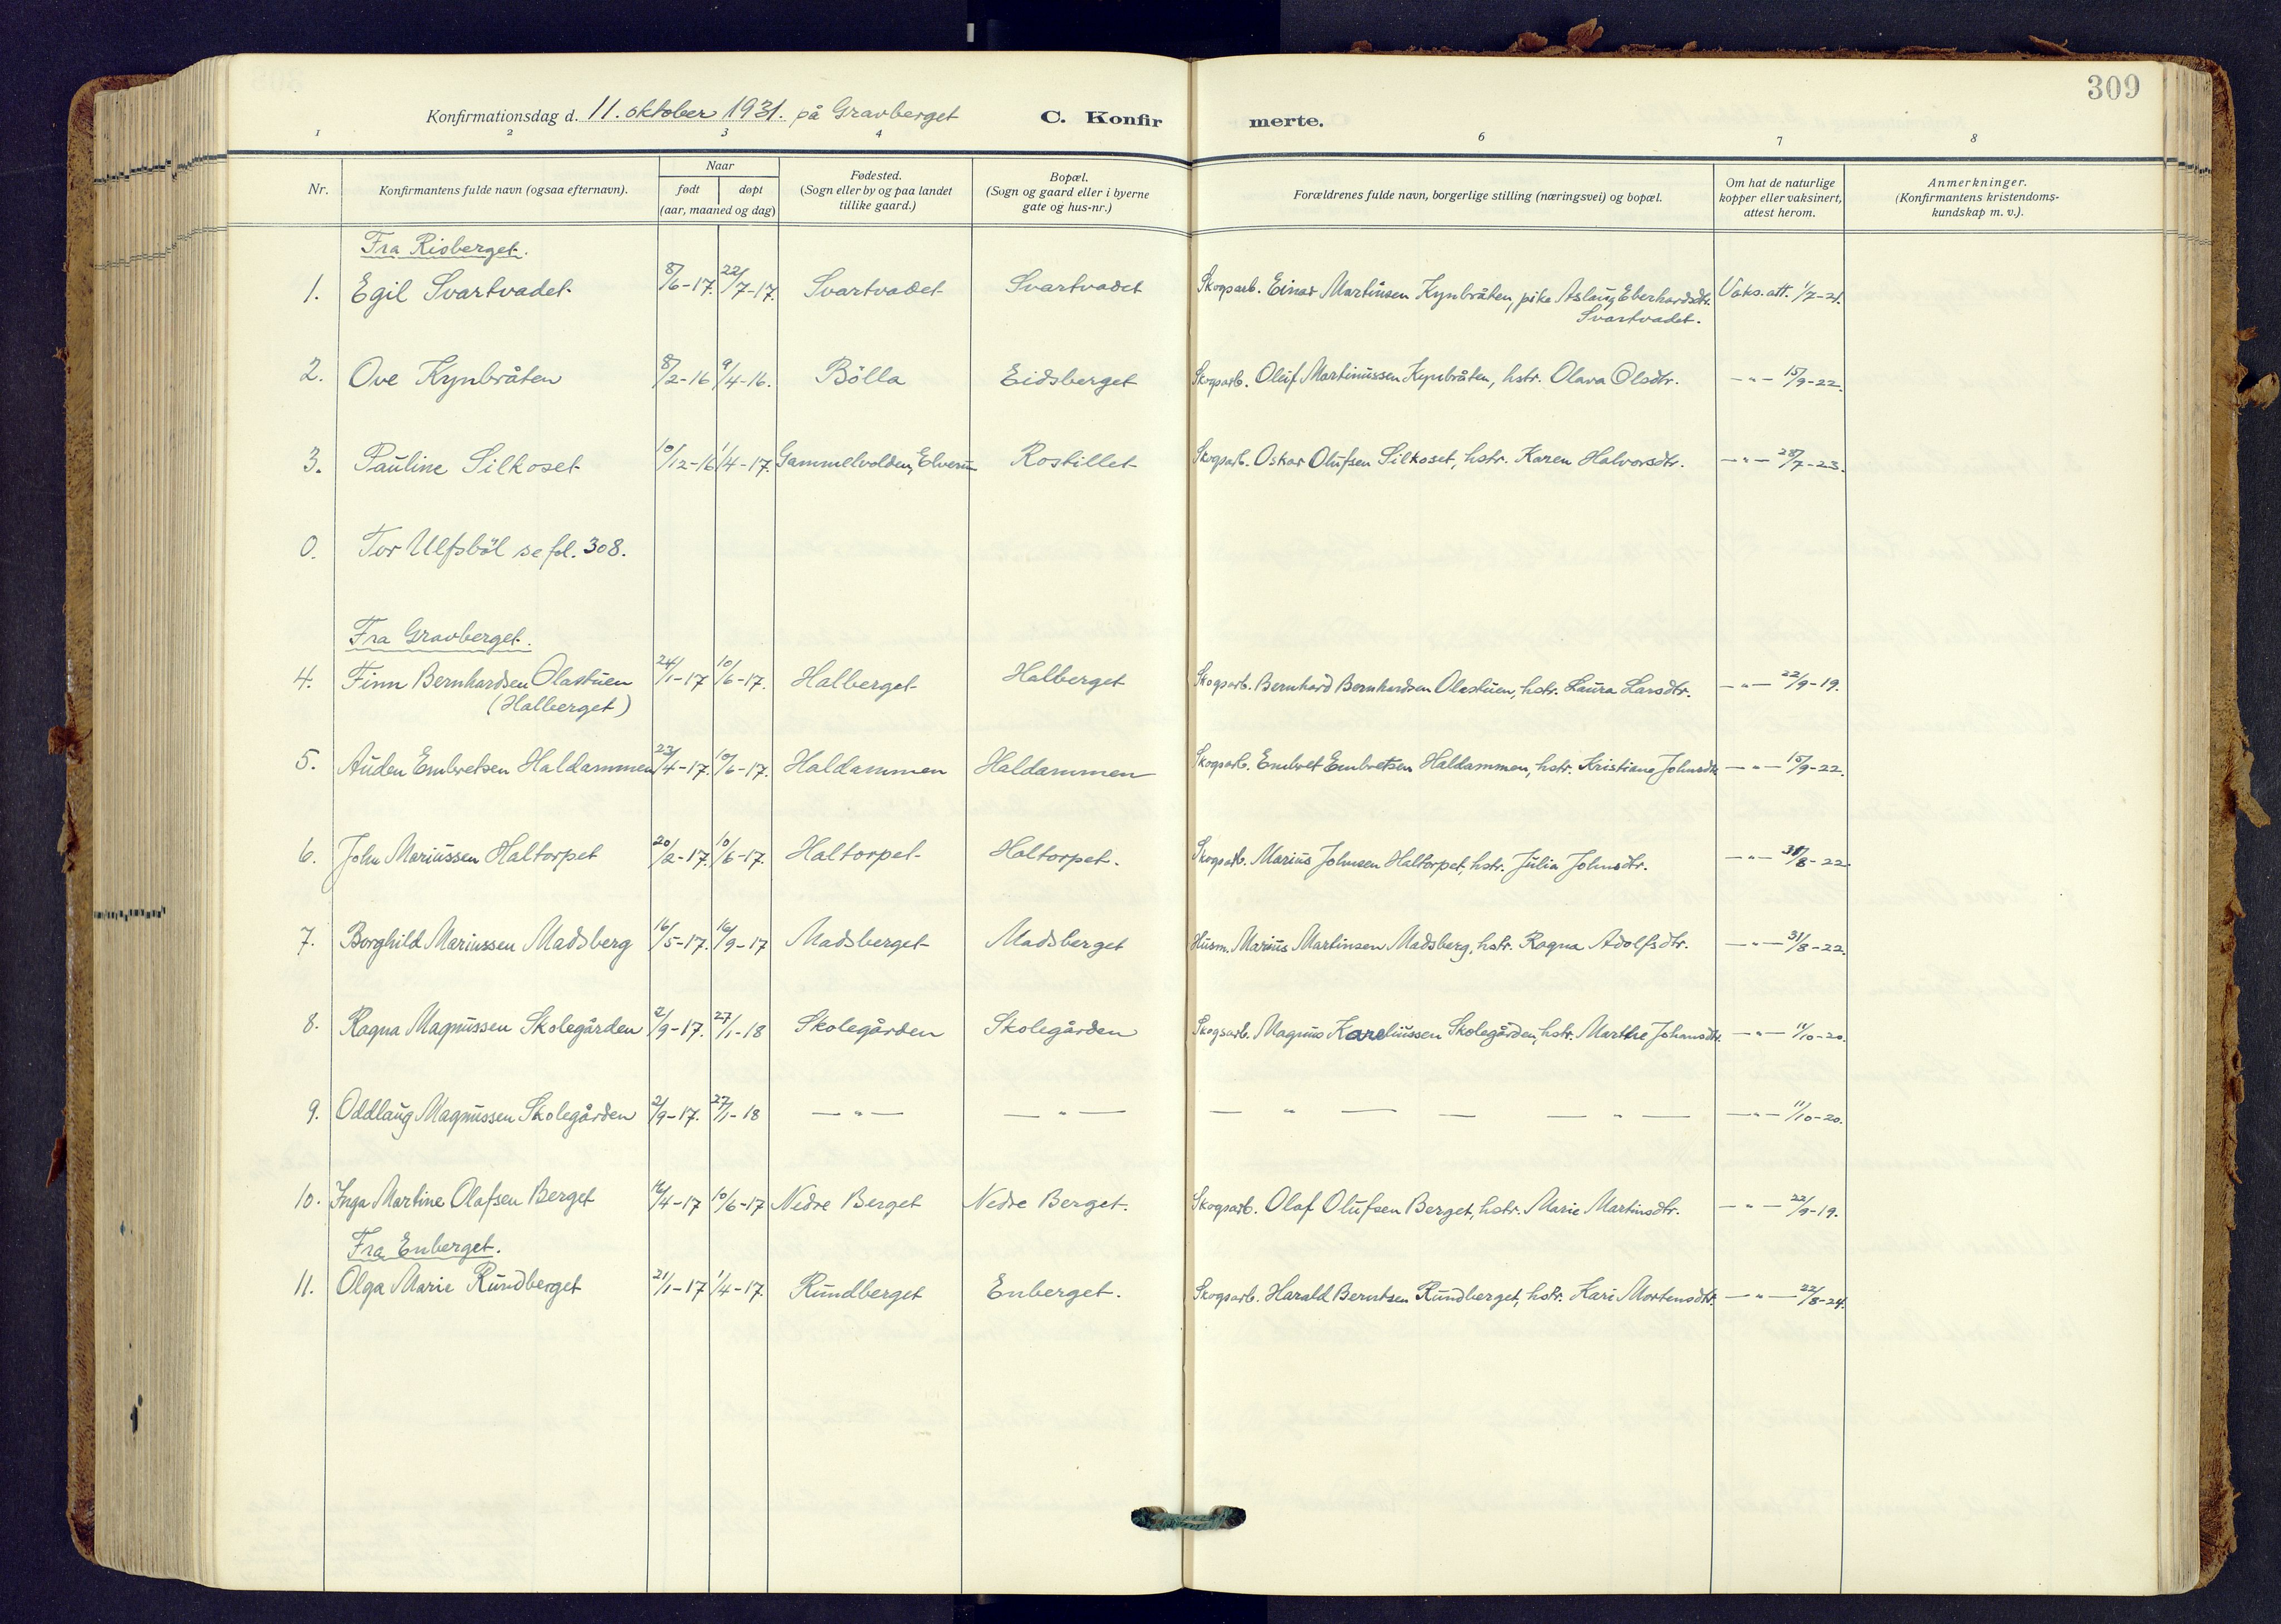 309
Konfirmationsdag d. 11. oktober 1931. på Gravberget C. Konfir merte.
1 2 3 4 6 7 8
Nr. Konfirmantens fulde navn (ogsaa efternavn). Naar født døpt (aar, maaned og dag) Fødested. (Sogn eller by og paa landet tillike gaard.) Bopæl. (Sogn og gaard eller i byerne gate og hus-nr.) Forældrenes fulde navn, borgerlige stilling (næringsvei) og bopæl. Om hat de naturlige kopper eller vaksinert, attest herom. Anmerkninger. (Konfirmantens kristendoms-kundskap m. v.).
Fra Risberget.
1. Egil Svartvadet 8/6-17. 22/7-17. Svartvadet Svartvadet Skogsarb. Einar Martinsen Kynbråten, pike Aslaug Eberhardsdtr. Vaks.att. 1/7-21.
Svartvadet.
2. Ove Kynbråten 8/2-16 9/4-16. Bölla Eidsberget Skogsarb. Oluf Martinussen Kynbråten, hstr. Olava Olsdtr. —"— 15/9-22.
3. Pauline Silkoset 10/12-16 1/4-17. Gammelvolden, Elverum Rostillet Skogsarb. Oskar Olufsen Silkoset, hstr. Karen Halvorsdtr. —"— 28/7-23.
0. Tor Ulfsböl se fol. 308.
Fra Gravberget.
4. Finn Bernhardsen Olastuen 24/1-17 10/6-17. Halberget Halberget Skogsarb. Bernhard Bernhardsen Olastuen, hstr. Laura Larsdtr. —"— 22/9-19.
(Halberget)
5. Auden Embretsen Haldammen 23/4-17. 10/6-17. Haldammen Haldammen Skogsarb. Embret Embretsen Haldammen, hstr. Kristiane Johnsdtr. —"— 15/9-22.
6. John Mariussen Haltorpet 20/2-17. 10/6-17. Haltorpet Haltorpet. Skogsarb. Marius Johnsen Haltorpet, hstr. Julia Johnsdtr. —"— 31/8-22.
7. Borghild Mariussen Madsberg 16/5-17. 16/9-17 Madsberget Madsberget Husm. Marius Martinsen Madsberg, hstr. Ragna Adolfsdtr. —"— 31/8-22.
8. Ragna Magnussen Skolegården 2/9-17. 27/1-18 Skolegården Skolegården Skogsarb. Magnus Kareliussen Skolegården, hstr. Marthe Johansdtr. —"— 11/10-20.
9. Oddlaug Magnussen Skolegården 2/9-17. 27/1-18 —"— —"— — " — — — " — —"— 11/10-20.
10. Inga Martine Olafsen Berget 16/4-17 10/6-17 Nedre Berget Nedre Berget. Skogsarb. Olaf Olufsen Berget, hstr. Marie Martinsdtr. —"— 22/9-19.
Fra Enberget.
11. Olga Marie Rundberget 21/1-17 1/4-17. Rundberget Enberget. Skogsarb. Harald Berntsen Rundberget, hstr. Kari Mortensdtr. —"— 22/8-24.